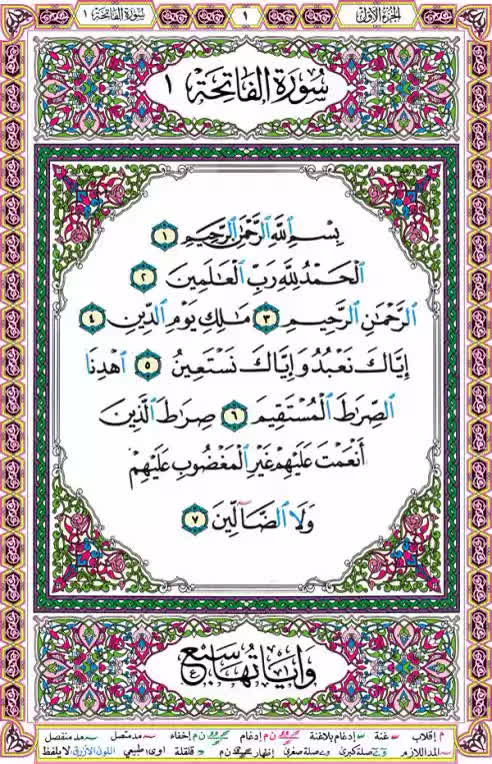 الجزء الأول ١ سورة الفاتحة ١
سُورَةُ الفَاتِحَةِ ١
بِسْمِ اللَّهِ الرَّحْمَٰنِ الرَّحِيمِ ١
الْحَمْدُ لِلَّهِ رَبِّ الْعَالَمِينَ ٢
الرَّحْمَٰنِ الرَّحِيمِ ٣ مَالِكِ يَوْمِ الدِّينِ ٤
إِيَّاكَ نَعْبُدُ وَإِيَّاكَ نَسْتَعِينُ ٥ اهْدِنَا
الصِّرَاطَ الْمُسْتَقِيمَ ٦ صِرَاطَ الَّذِينَ
أَنْعَمْتَ عَلَيْهِمْ غَيْرِ الْمَغْضُوبِ عَلَيْهِمْ
وَلَا الضَّالِّينَ ٧
وَآيَاتُهَا سَبْعٌ
م إقلاب غنة إدغام بلاغنة ن م إدغام ن م إخفاء مد متصل مد منفصل
المد اللازم صلة كبرى وصلة صغرى إظهار ن م قلقلة اوى، طبيعي اللون الأزرق لا يلفظ